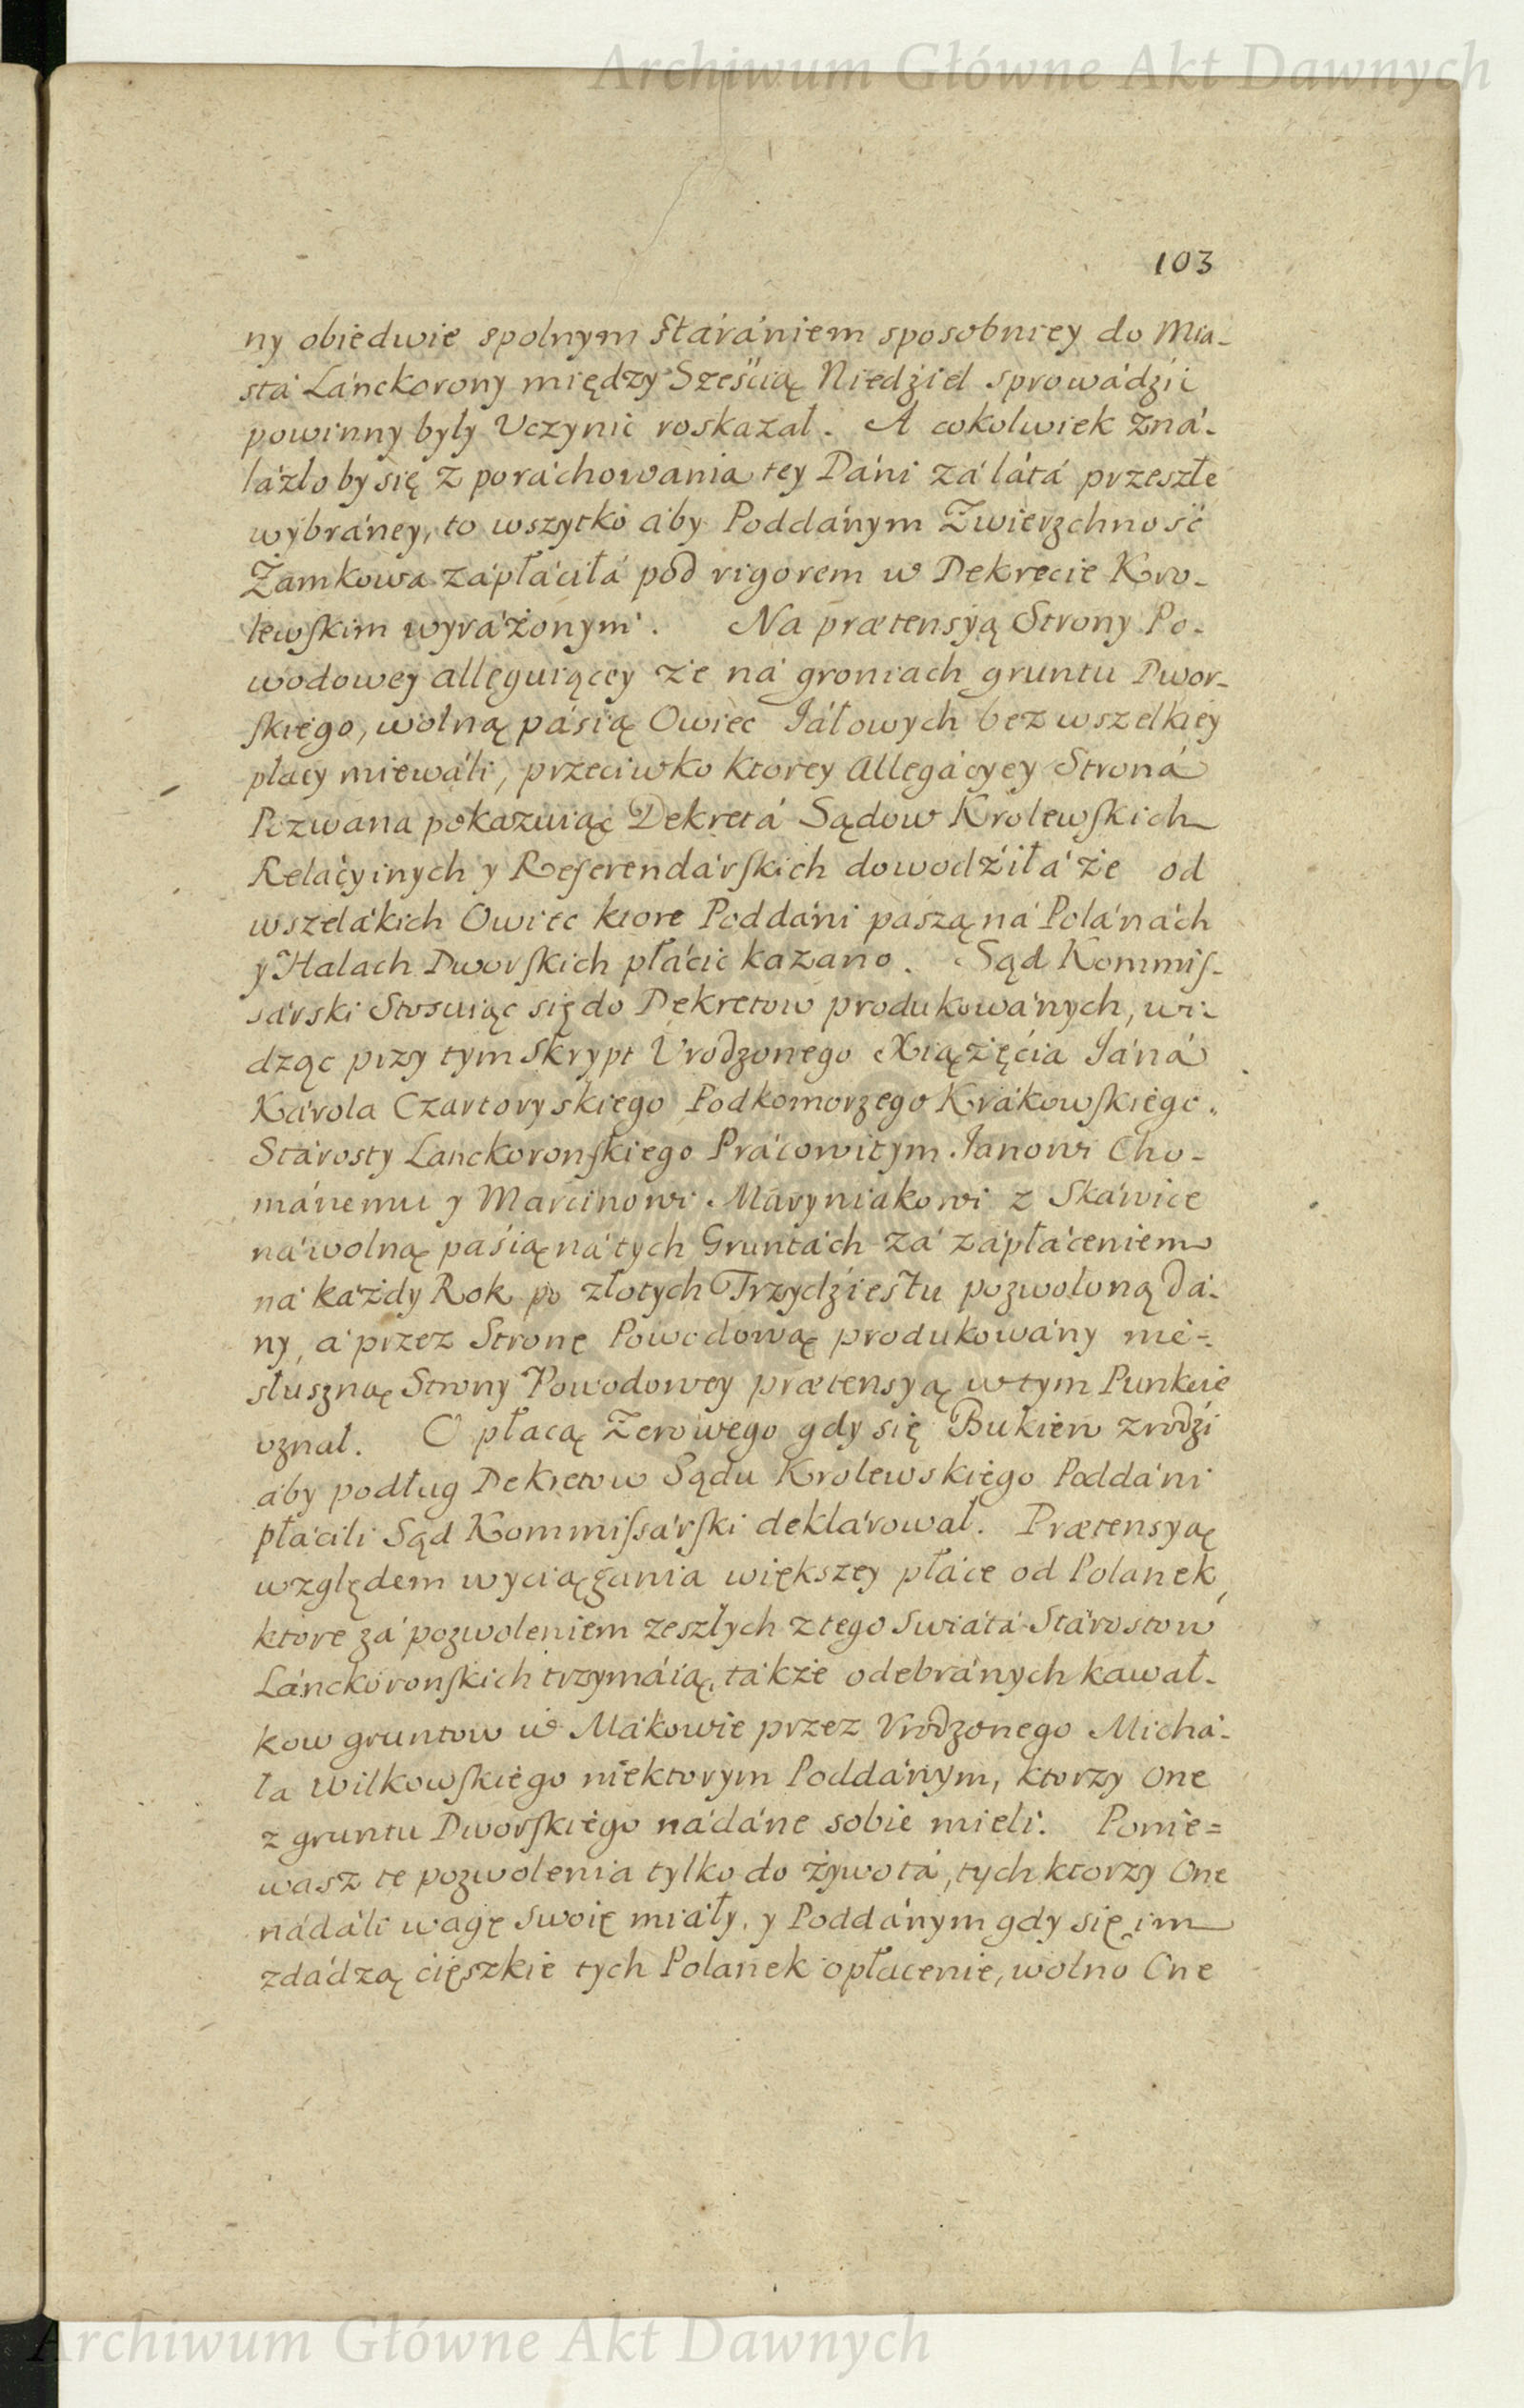 Archiwum Główne Akt Dawnych
103
ny obiedwie spolnym stárániem sposobniey do Mia-
stá Lánckorony między Sześcią Niedźiel sprowádźić
powinny były Uczynić roskazał. A cokolwiek Zná-
lázło by się z poráchowánia tey Dáni zá látá przeszłe
wybráney, to wszytko áby Poddánym Zwierzchność
Zamkowa zápłáciłá pod rigorem w Dekrecie Kro-
lewſkim wyráżonym. Na prætensyą Strony Po-
wodowey alleguiącey że ná groniach gruntu Dwor-
ſkiego, wolną páśią Owiec Jáłowych bez wszelkiey
płacy miewáli, przeciwko ktorey Allegácyey Stroná
Pozwana pokazuiąc Dekretá Sądow Krolewſkich
Relácyinych y Referendárſkich dowodźiłá że od
wszelákich Owiec ktore Poddáni paszą ná Polánách
y Halach Dworſkich płácić kazano. Sąd Kommiſ-
sárski Stosuiąc się do Dekretow produkowánych, wi-
dząc przy tym Skrypt Vrodzonego Xiążięcia Jáná
Károla Czartoryskiego Podkomorzego Krákowſkiego.
Stárosty Lanckoronſkiego Prácowitym Janowi Cho-
mánemu y Marcinowi Maryniakowi z Skáwice
ná wolną páśią ná tych Gruntách zá zápłáceniem
ná káżdy Rok po złotych Trzydźiestu pozwoloną dá-
ny, á przez Stronę Powodową produkowány nie=
słuszną Strony Powodowey prætensyą w tym Punkcie
uznał. O płacą Zerowego gdy się Bukiew zrodźi
áby podług Dekretow Sądu Krolewskiego Poddáni
płácili Sąd Kommiſsárſki deklárował. Prætensyą
względem wyciągánia większey płáce od Polanek,
ktore zá pozwoleniem zeszłych z tego Swiátá Stárostow
Lánckoronſkich trzymáią, tákże odebránych kawał-
kow gruntow w Mákowie przez Vrodzonego Michá-
ła Wilkowſkiego niektorym Poddánym, ktorzy One
z gruntu Dworſkiego nádáne sobie mieli. Ponie=
wasz te pozwolenia tylko do żywotá, tych ktorzy One
nádáli wagę swoię miáły, y Poddánym gdy się im
zdádzą cięszkie tych Polanek opłacenie, wolno One
Archiwum Główne Akt Dawnych